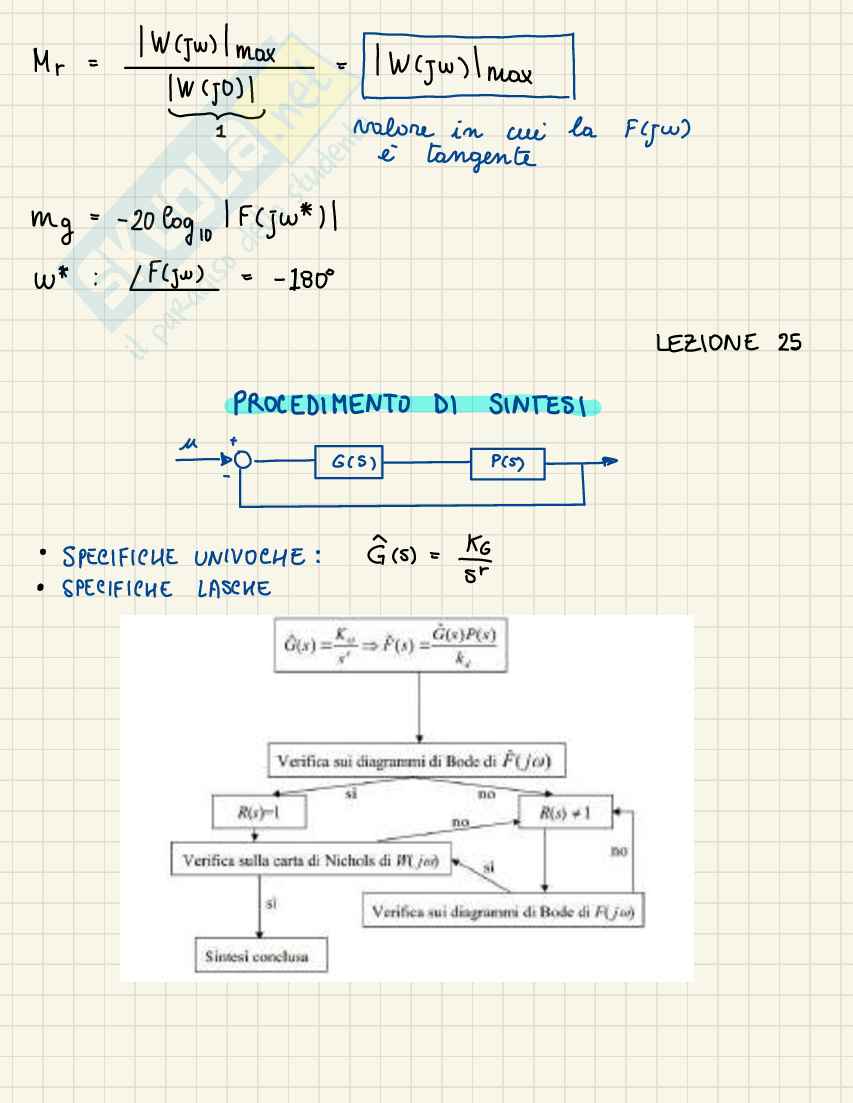 Mr = |W(jω)|max / |W(j0)| = |W(jω)|max
1
valore in cui la F(jω)
è tangente
mg = -20 log10 |F(jω*)|
ω* : ∠F(jω) = -180°
LEZIONE 25
PROCEDIMENTO DI SINTESI
μ + - G(s) P(s)
• SPECIFICHE UNIVOCHE : Ĝ(s) = KG / s^r
• SPECIFICHE LASCHE
Ĝ(s) = / s^r ⇒ F̂(s) = Ĝ(s)P(s) / k_d
Verifica sui diagrammi di Bode di F̂(jω)
sì no
R(s)=1 R(s) ≠ 1
no
Verifica sulla carta di Nichols di W(jω) no
sì
sì
Verifica sui diagrammi di Bode di F(jω)
Sintesi conclusa
SKUOLA.net
il paradiso dello studente